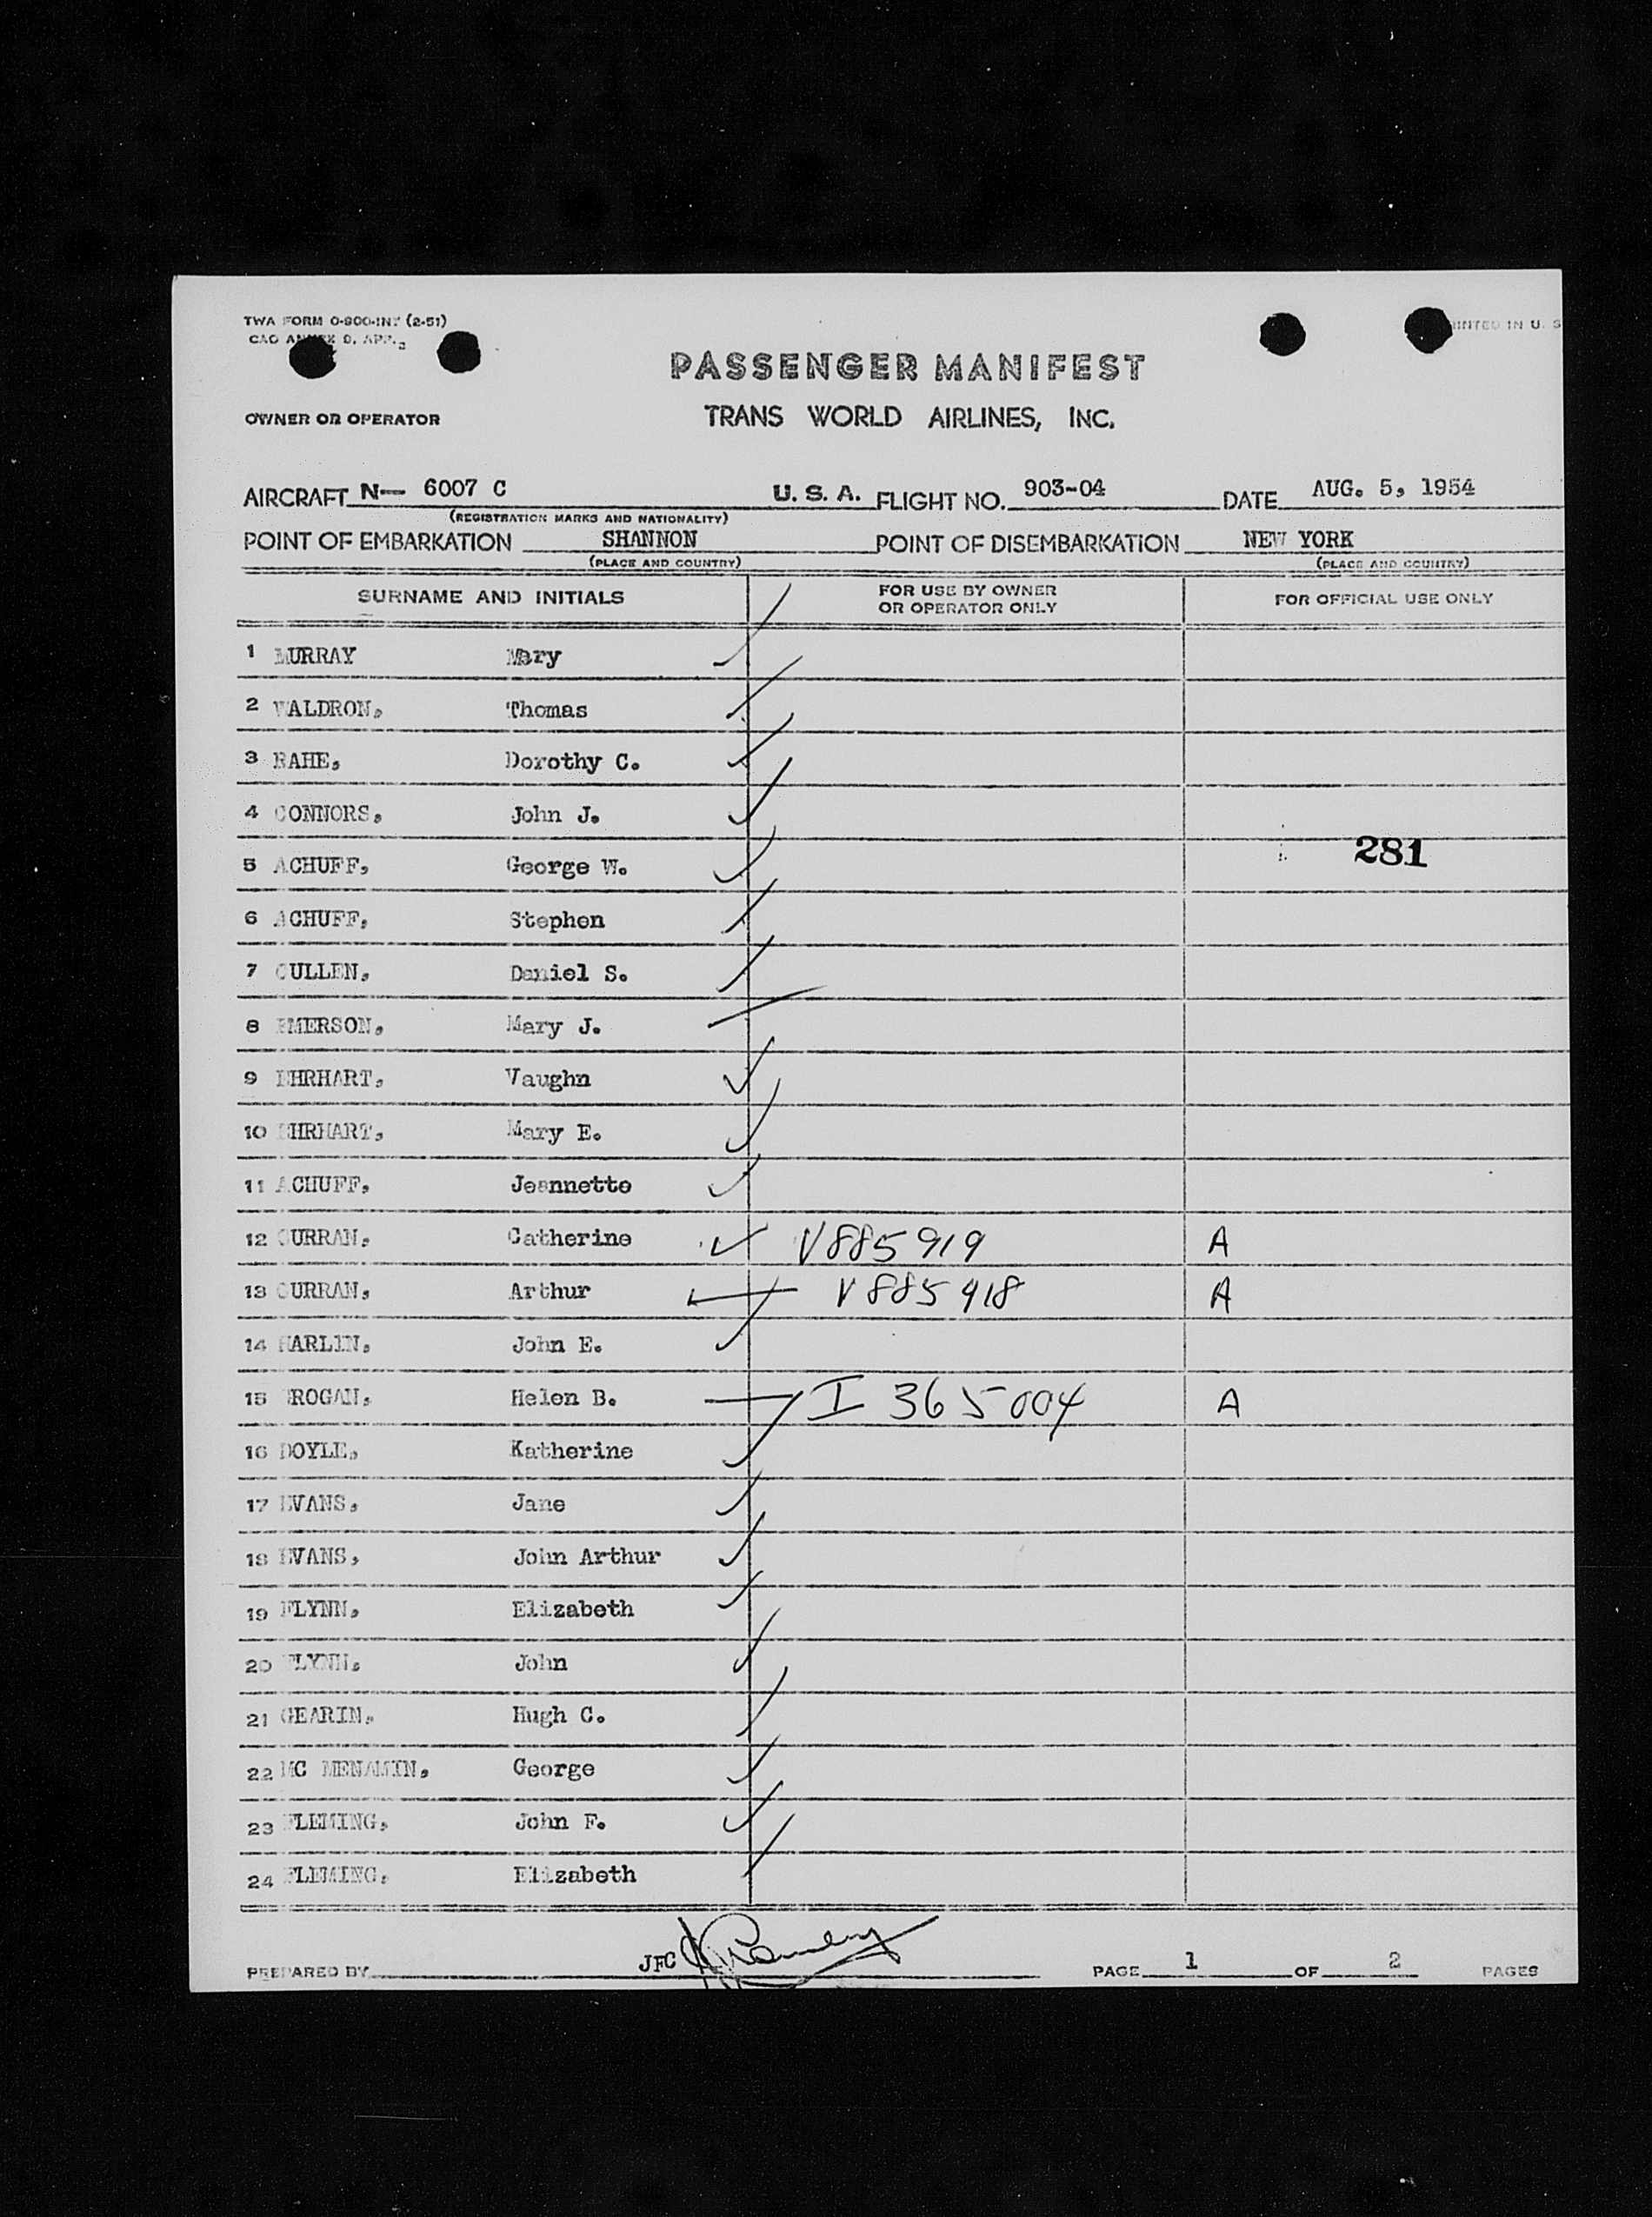 TWA FORM O-900-INT (2-51)
PRINTED IN U. S
PASSENGER MANIFEST
OWNER OR OPERATOR TRANS WORLD AIRLINES, INC.
AIRCRAFT N— 6007 C U. S. A. FLIGHT NO. 903-04 DATE AUG. 5, 1954
(REGISTRATION MARKS AND NATIONALITY)
POINT OF EMBARKATION SHANNON POINT OF DISEMBARKATION NEW YORK
(PLACE AND COUNTRY) (PLACE AND COUNTRY)
SURNAME AND INITIALS FOR USE BY OWNER OR OPERATOR ONLY FOR OFFICIAL USE ONLY
1 MURRAY Mary
2 WALDRON, Thomas
3 RAHE, Dorothy C.
4 CONNORS, John J.
281
5 ACHUFF, George W.
6 ACHUFF, Stephen
7 CULLEN, Daniel S.
8 EMERSON, Mary J.
9 EHRHART, Vaughn
10 EHRHART, Mary E.
11 ACHUFF, Jeannette
12 CURRAN, Catherine V885919 A
13 CURRAN, Arthur V885918 A
14 HARLIN, John E.
15 BROGAN, Helen B. I 365004 A
16 DOYLE, Katherine
17 EVANS, Jane
18 EVANS, John Arthur
19 FLYNN, Elizabeth
20 FLYNN, John
21 GEARIN, Hugh C.
22 MC MENAMIN, George
23 FLEMING, John F.
24 FLEMING, Elizabeth
PREPARED BY JFC PAGE 1 OF 2 PAGES